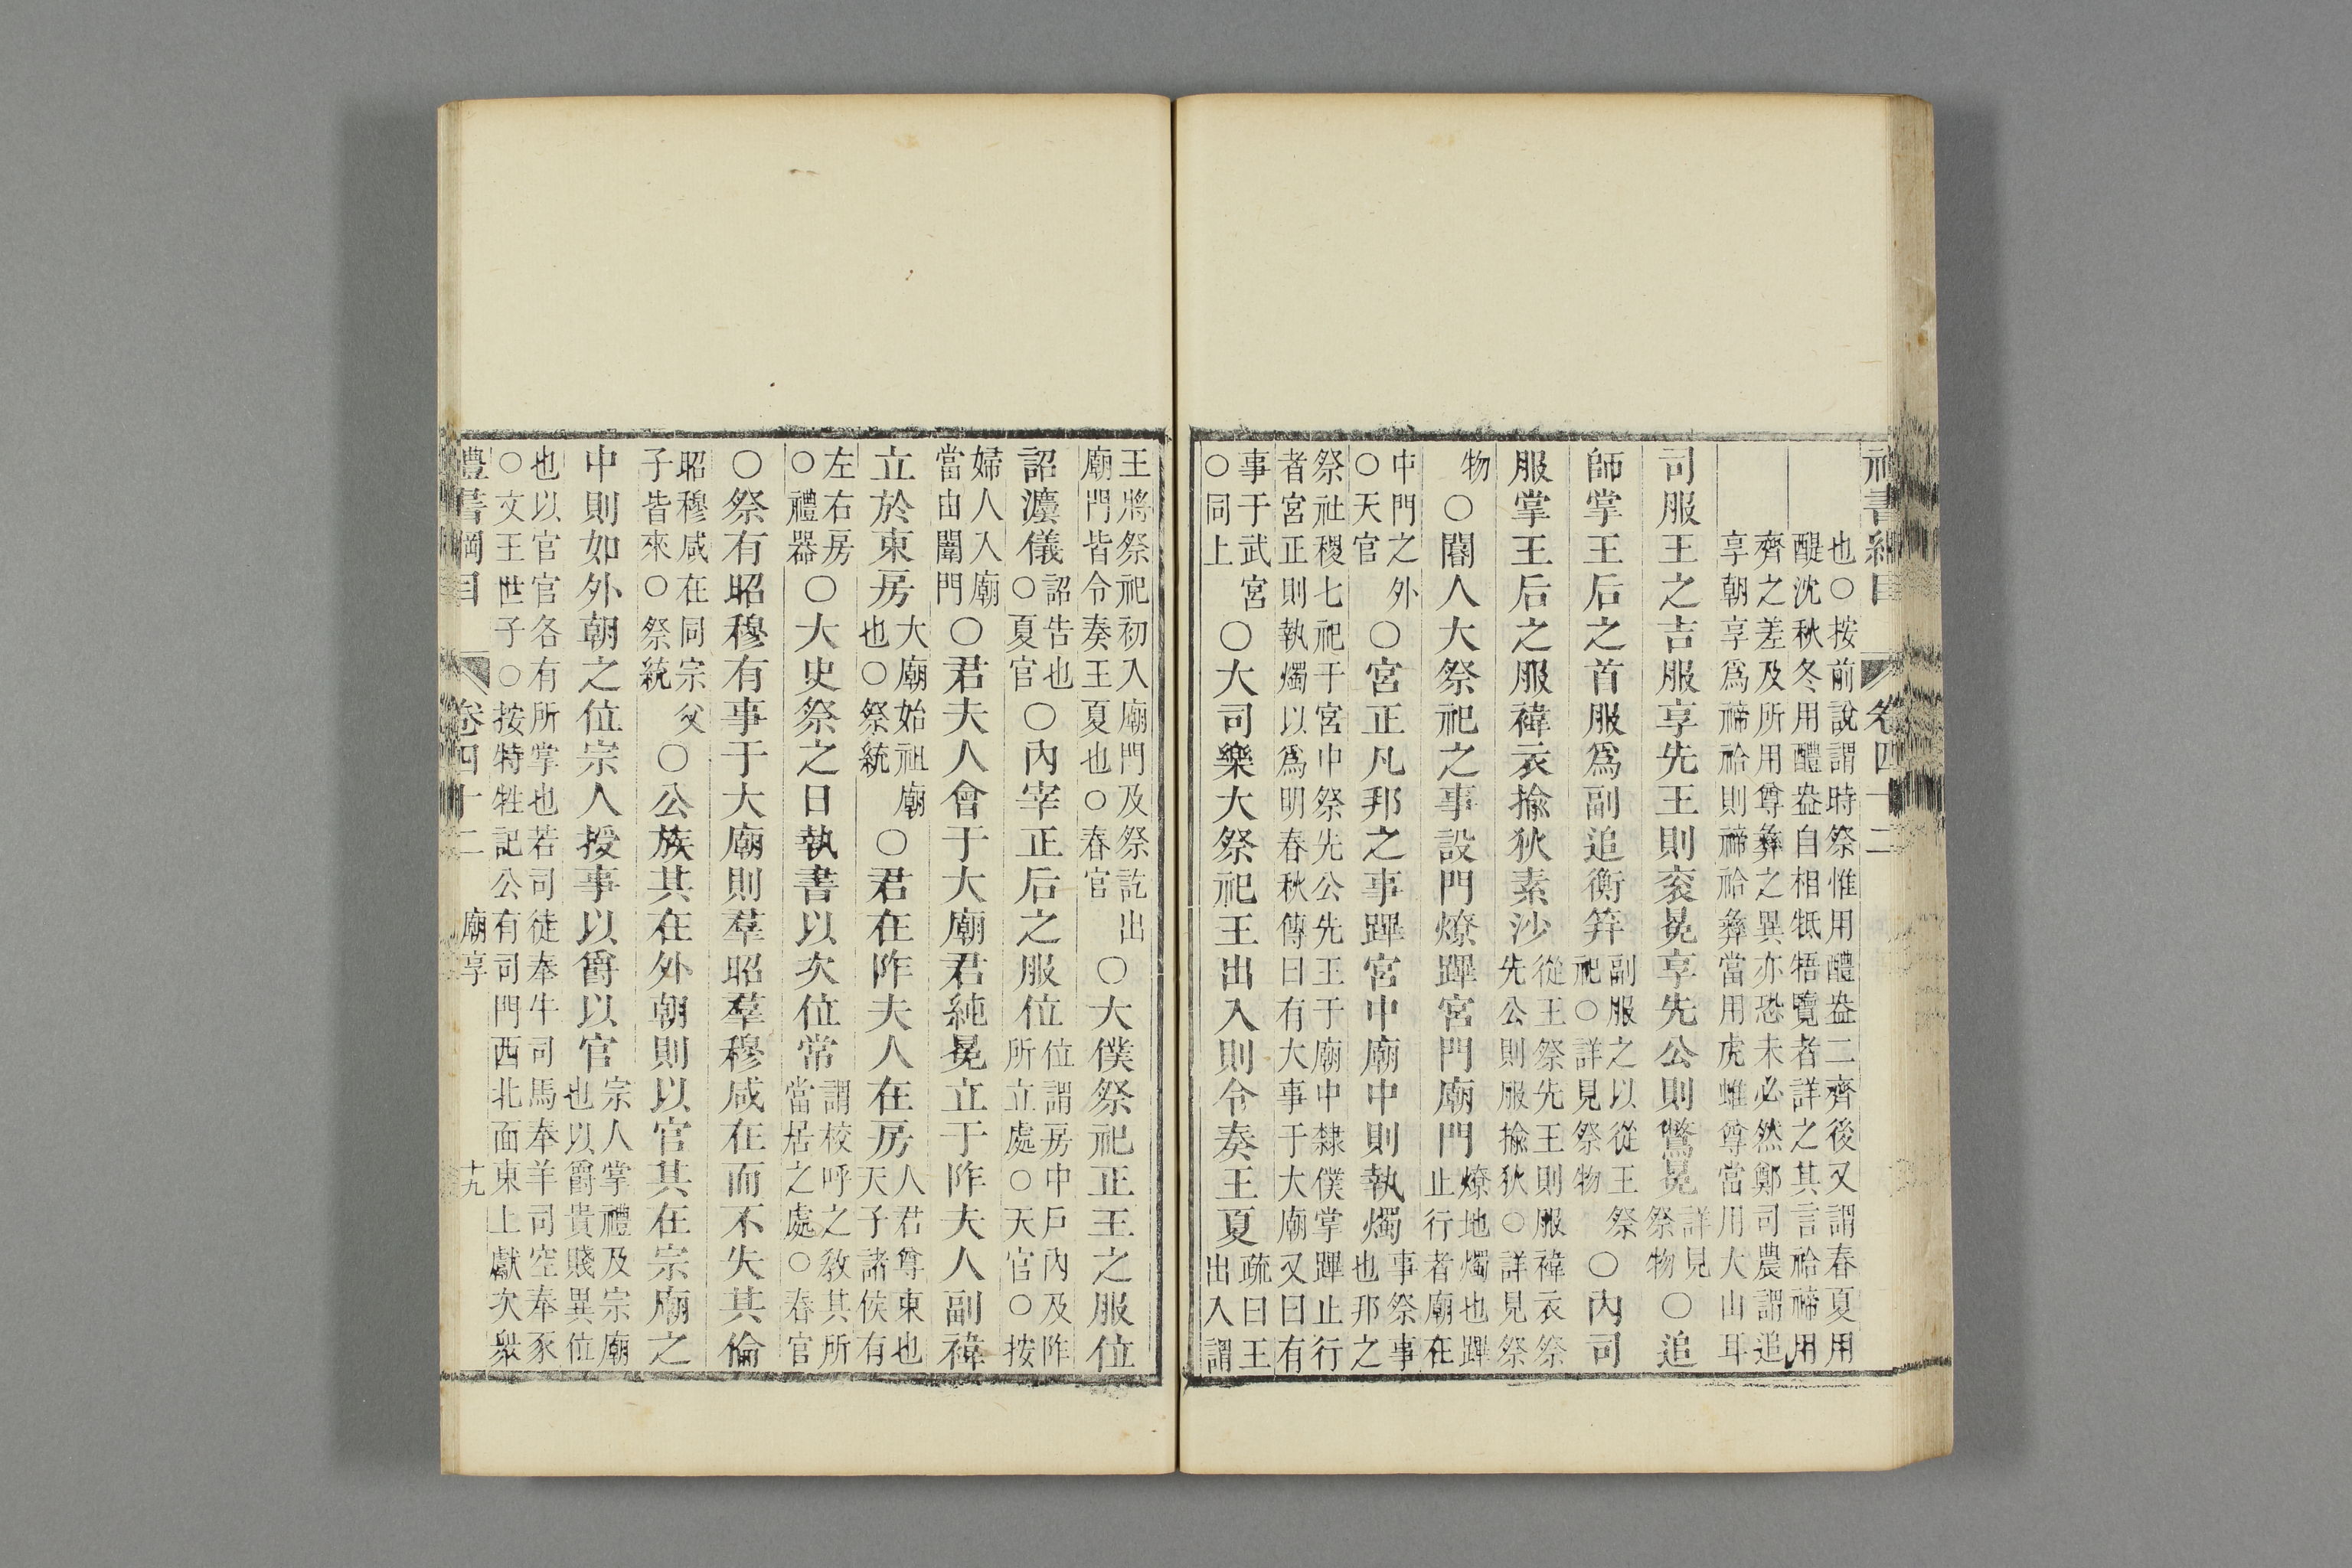 禮書綱目 卷四十二
也○按前說謂時祭惟用醴盎二齊後又謂春夏用
醍沈秋冬用醴盎自相牴牾覽者詳之其言祫禘用
齊之差及所用尊彝之異亦恐未必然鄭司農謂追
享朝享爲禘祫則禘祫彝當用虎蜼尊當用大山耳
司服王之吉服享先王則袞冕享先公則鷩冕詳見祭物○追
師掌王后之首服爲副追衡筓副服之以從王祭祀○詳見祭物○內司
服掌王后之服褘衣揄狄素沙從王祭先王則服褘衣祭先公則服揄狄○詳見祭
物○閽人大祭祀之事設門燎蹕宮門廟門燎地燭也蹕止行者廟在
中門之外○天官○宮正凡邦之事蹕宮中廟中則執燭事祭事也邦之
祭社稷七祀于宮中祭先公先王于廟中隸僕掌蹕止行
者宮正則執燭以爲明春秋傳曰有大事于大廟又曰有
事于武宮○同上○大司樂大祭祀王出入則令奏王夏疏曰王出入謂
王將祭祀初入廟門及祭訖出廟門皆令奏王夏也○春官○大僕祭祀正王之服位
詔灋儀詔告也○夏官○內宰正后之服位位謂房中戶內及阼所立處○天官○按
婦人入廟當由闈門○君夫人會于大廟君純冕立于阼夫人副褘
立於東房大廟始祖廟也○祭統○君在阼夫人在房人君尊東也天子諸侯有
左右房○禮器○大史祭之日執書以次位常謂校呼之敎其所當居之處○春官
○祭有昭穆有事于大廟則羣昭羣穆咸在而不失其倫
昭穆咸在同宗父子皆來○祭統○公族其在外朝則以官其在宗廟之
中則如外朝之位宗人授事以爵以官宗人掌禮及宗廟也以爵貴賤異位
也以官官各有所掌也若司徒奉牛司馬奉羊司空奉豕
○文王世子○按特牲記公有司門西北面東上獻次衆
禮書綱目 卷四十二 廟享 十九